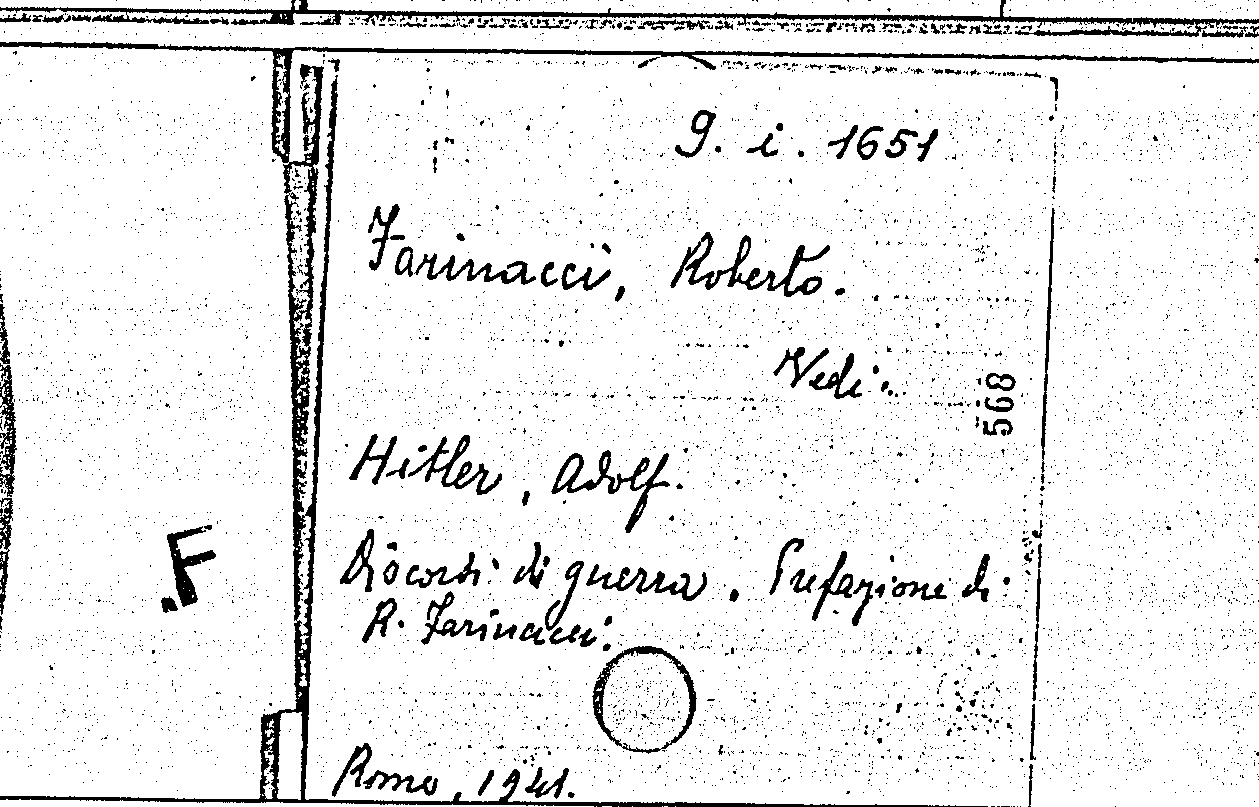 9. i. 1651
Farinacci, Roberto.
Vedi:
568
Hitler, Adolf.
Discorsi di guerra. Prefazione di
R. Farinacci.
F
Roma, 1941.